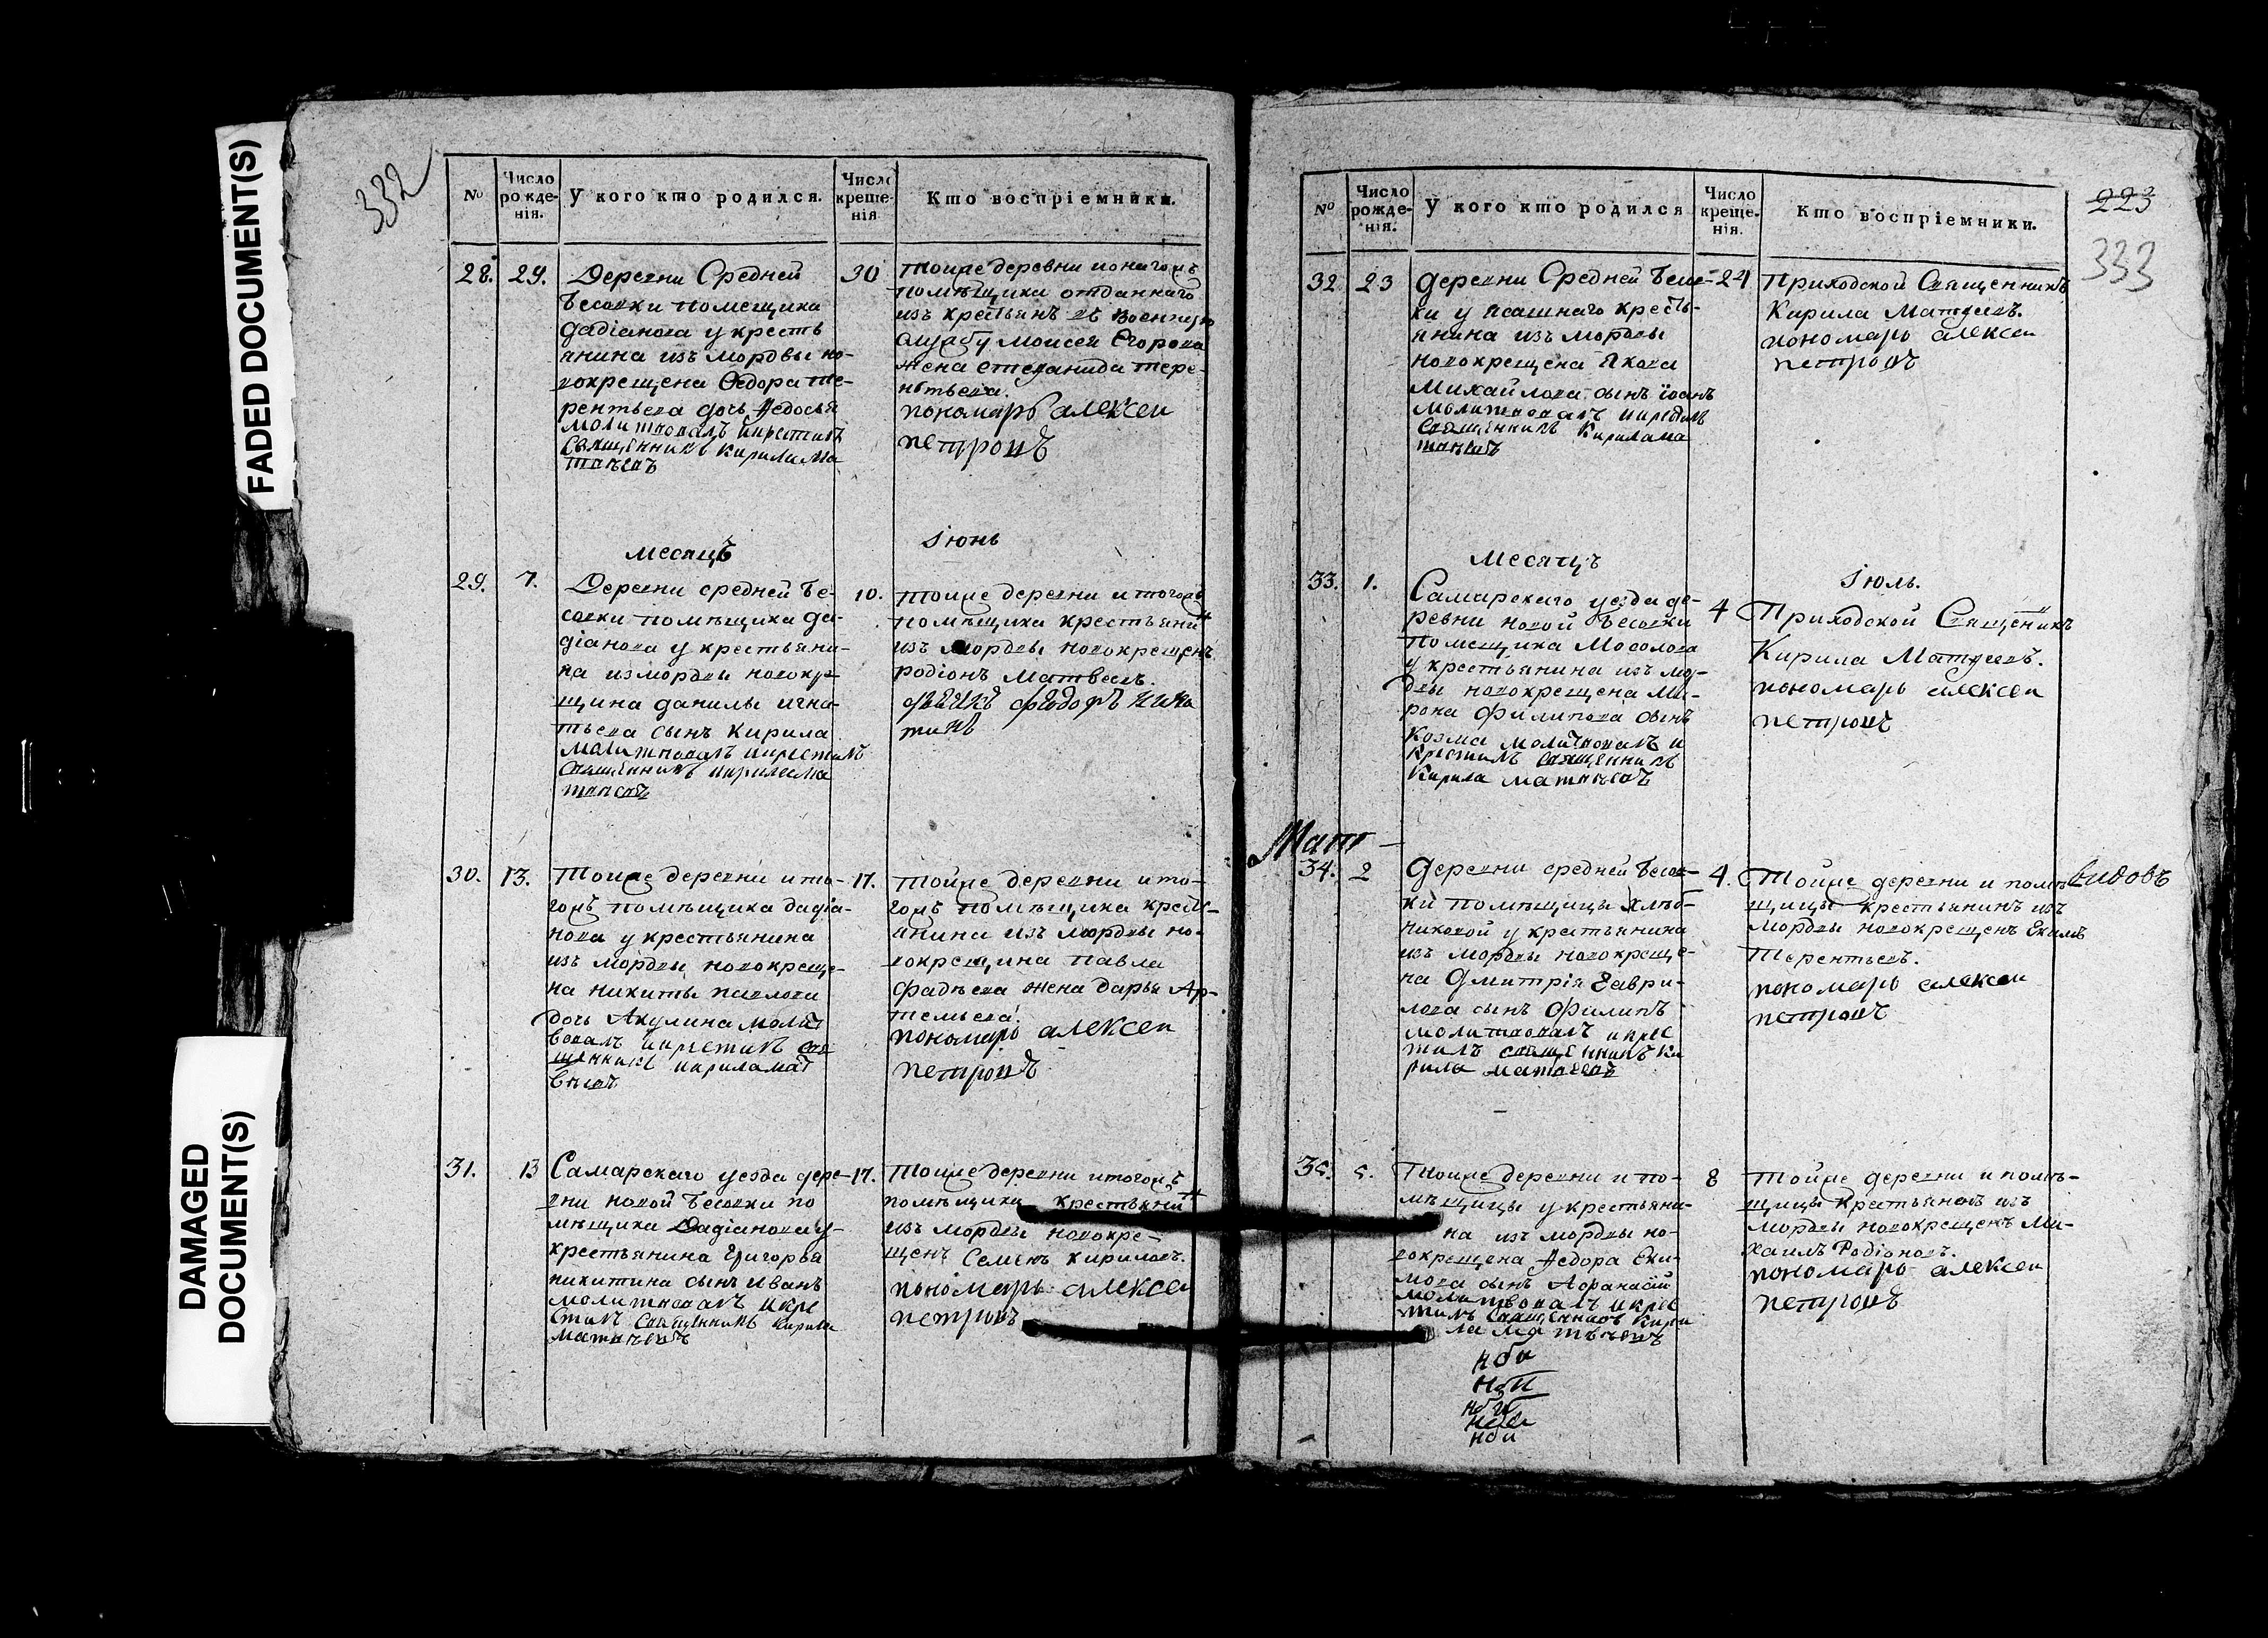 FADED DOCUMENT(S)
DAMAGED
DOCUMENT(S)
332
№
Число рожденія.
У кого кто родился.
Число крещенія
Кто воспріемники.
28. 29.
Деревни Средней
Бесовки помещика
дадіанова у кресть
янина изъ мордвы но-
вокрещена Федора те-
рентьева дочь Федосья
молитвовалъ икрестилъ
священникъ Кирила Ма
твѣевъ
30
тойже деревни
помѣщика отданнаго
изъ крестьянъ въ военную
службу Моисея Егорова
жена степанида тере-
нтьева.
пономарь алексеи
петровъ
месяцъ
Іюнь
29. 7.
Деревни средней Бе-
совки помѣщика да-
діанова у крестьяни-
на измордвы новокре
щина данилы игна-
тьева сынъ Кирила
молитвовалъ икрестилъ
священникъ кирила ма
твѣевъ
10.
тойже деревни итогожъ
помѣщика крестьянинъ
изъ мордвы новокрещенъ
родіонъ Матвеевъ.
дьячикъ федоръ ники
тинъ
30. 13.
Тойже деревни ито-
гожъ помѣщика дадіа-
нова у крестьянина
изъ мордвы новокреще-
на никиты павлова
дочь Акулина молит
вовалъ икрестилъ свя
щенникъ кирила мат
вѣевъ
17.
тойже деревни ито-
гожъ помѣщика кресть-
янина изъ мордвы но-
вокрещина Павла
Фадѣева жена дарья Ар-
темьева.
пономарь алексеи
петровъ
31. 13
Самарскаго уезда дере-
вни новой Бесовки по
мѣщика Дадіанова у
крестьянина Григорья
никитина сынъ Иванъ
молитвовалъ икре
стилъ священникъ Кирила
матвѣевъ
17.
тойже деревни итогожъ
помѣщика крестьянинъ
изъ мордвы новокре-
щенъ Семенъ Кириловъ.
пономарь алексеи
петровъ
223
333
№
Число рожденія.
У кого кто родился
Число крещенія.
Кто воспріемники.
32 23
деревни Средней Бесов-
ки у пашнаго кресть-
янина изъ мордвы
новокрещена Якова
Михайлова сынъ іоанъ
молитвовалъ икрестилъ
священникъ Кирила ма
твѣевъ
24
Приходской Священникъ
Кирила Матѳеевъ.
пономарь алексеи
петровъ
Месяцъ
Іюль.
33. 1.
Самарскаго уезда де-
ревни новой Бесовки
помещика Мосолова
у крестьянина изъ мор-
двы новокрещена Ми-
рона Филипова сынъ
Козма молитвовалъ и
крестилъ священникъ
Кирила матвѣевъ
4
Приходской Священикъ
Кирила Матѳеевъ.
пономарь алексеи
петровъ
34. 2
деревни средней Бесов-
ки помѣщицы Хлѣб-
никовой у крестьянина
изъ мордвы новокреще-
на Дмитрія Гаври-
лова сынъ Филипъ
молитвовалъ икрес
тилъ священникъ Ки
рила матвѣевъ
4.
Тойже деревни и помѣ
щицы крестьянинъ изъ
мордвы новокрещенъ Екимъ
Терентьевъ.
пономарь алексеи
петровъ
35. 5.
Тойже деревни и по-
мѣщицы у крестьяни-
на изъ мордвы но-
вокрещена Федора Еки-
мова сынъ Афанасій
молитвовалъ икрес
тилъ священникъ Кири
ла матвѣевъ
8
тойже деревни и помѣ-
щицы крестьянинъ изъ
мордвы новокрещенъ Ми-
хаилъ Родіоновъ.
пономарь алексеи
петровъ